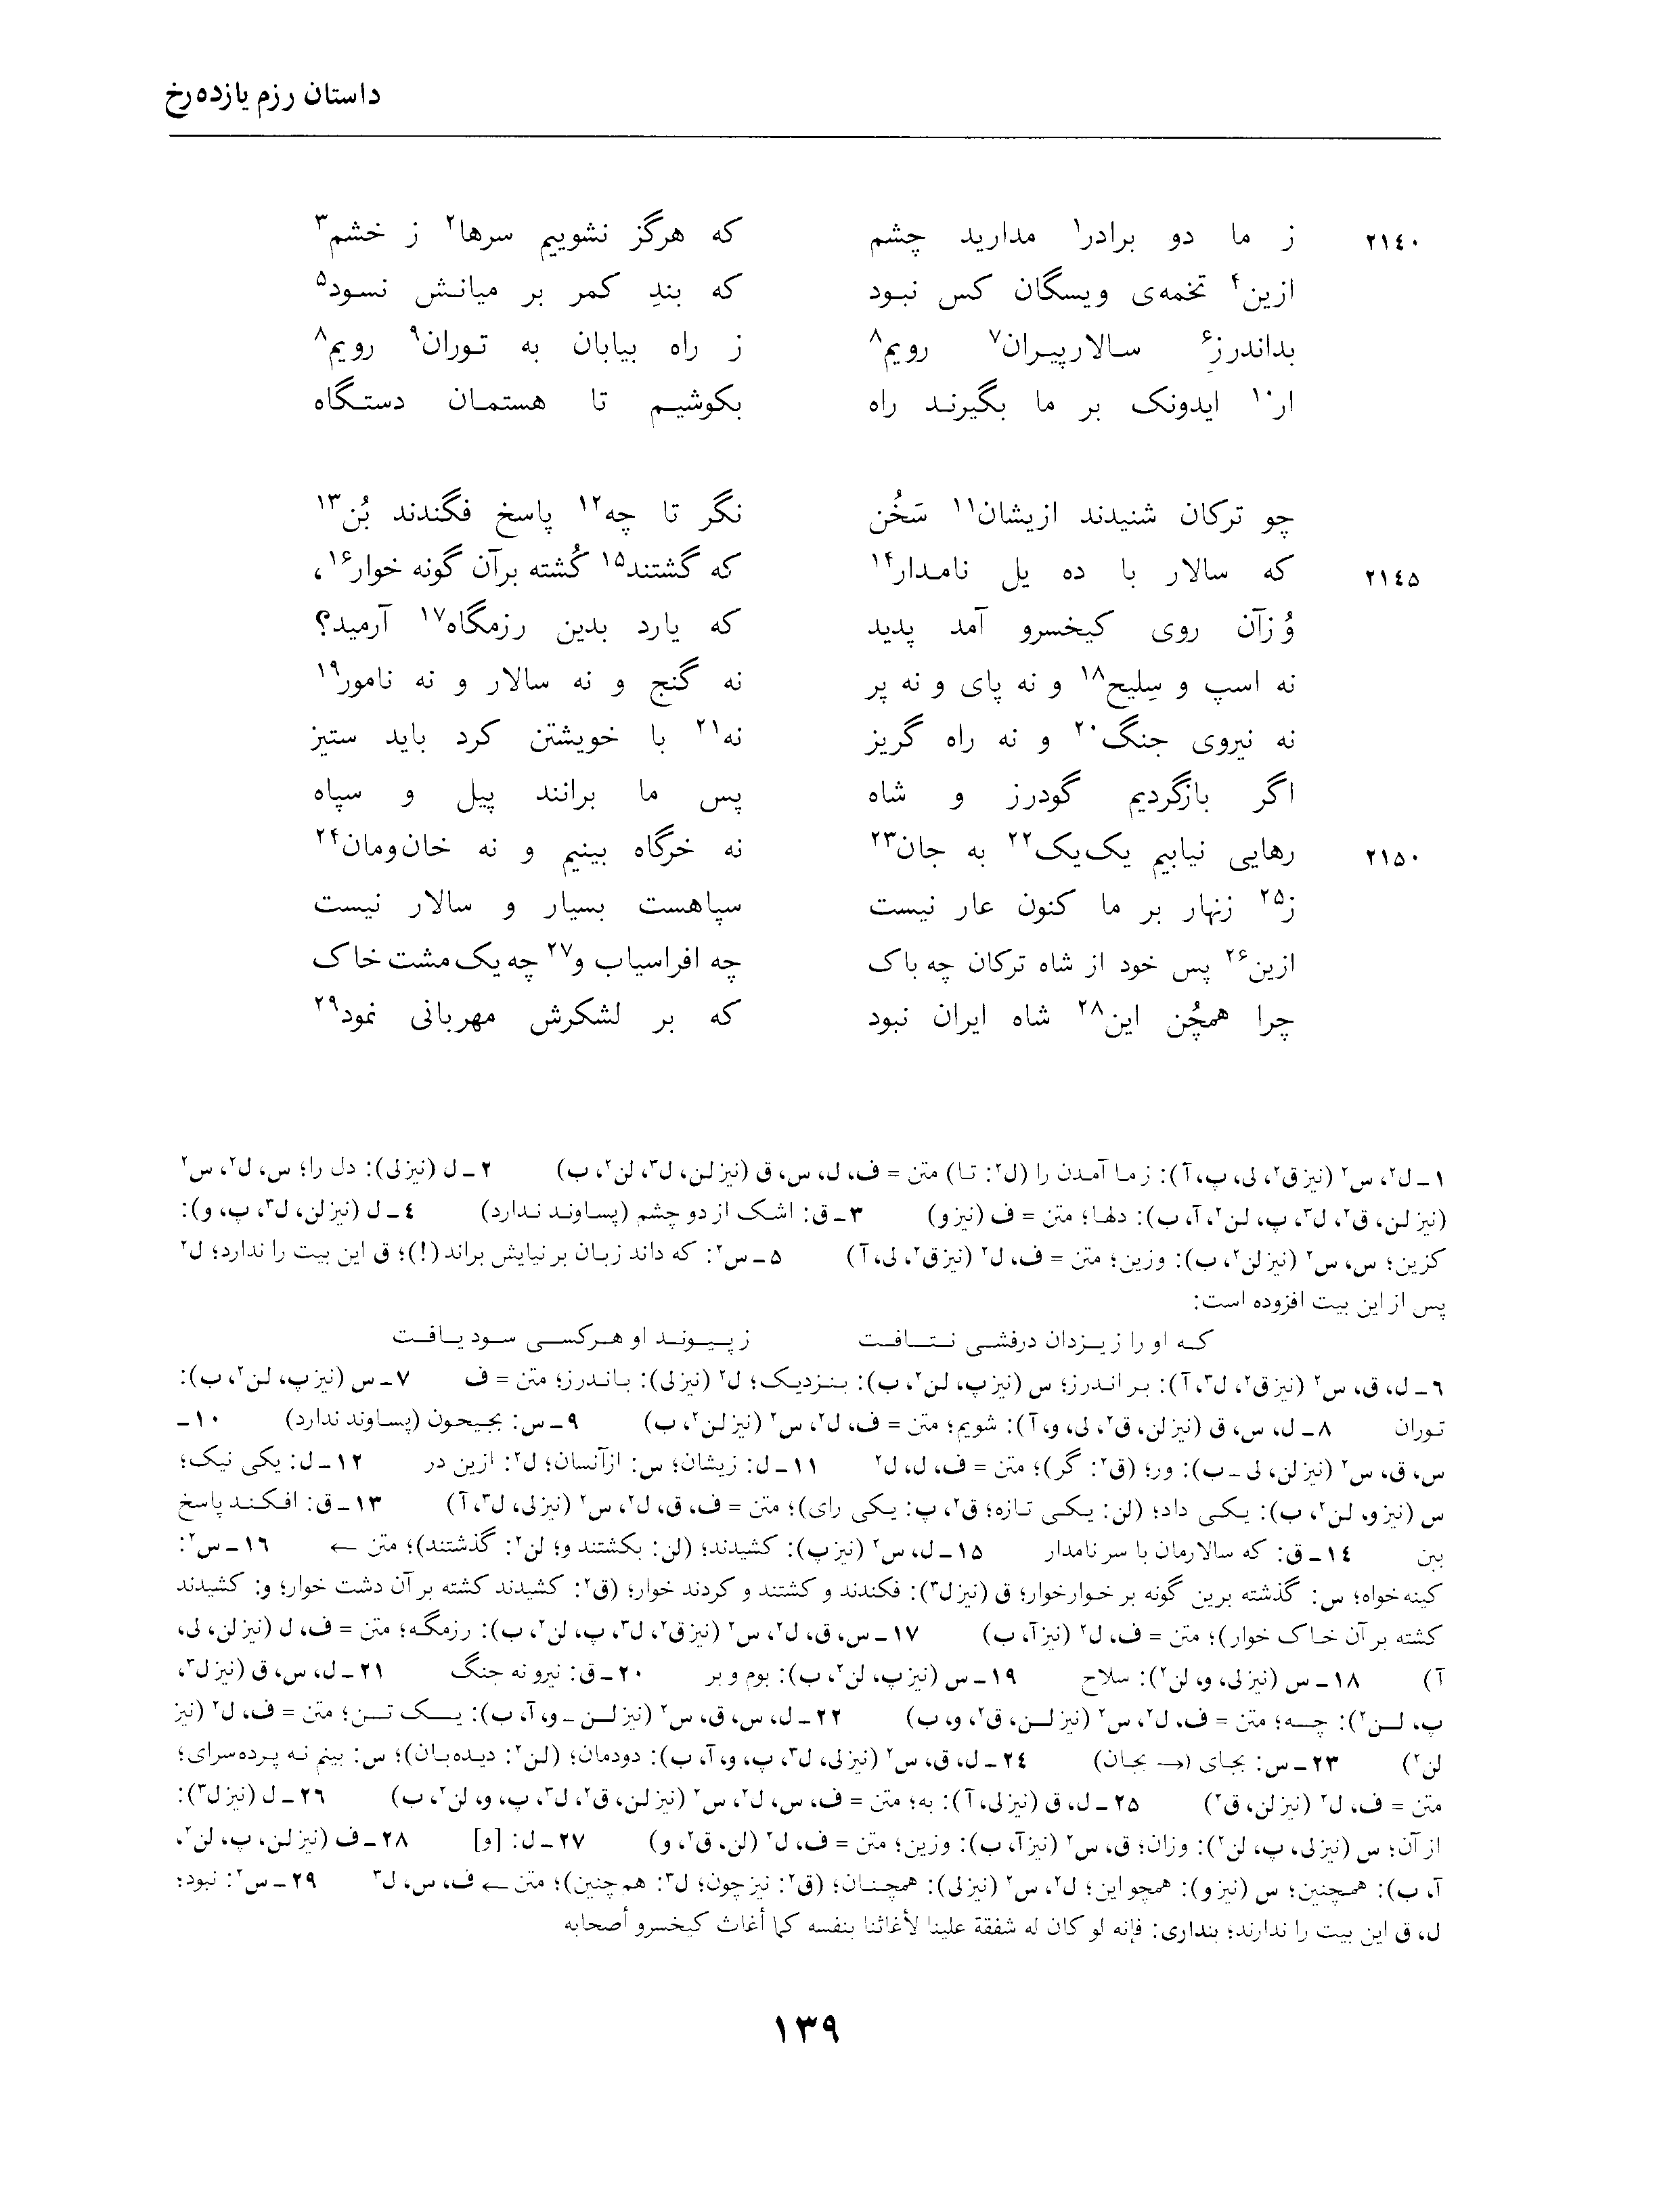 داستان رزم یازده‌رخ
۲۱٤۰ ز ما دو برادر۱ مدارید چشم که هرگز نشوییم سرها۲ ز خشم۳
ازین۴ تخمه‌ی ویسگان کس نبود که بندِ کمر بر میانش نسود۵
بداندرزِ۶ سالارپیران۷ رویم۸ ز راه بیابان به توران۹ رویم۸
ار۱۰ ایدونک بر ما بگیرند راه بکوشیم تا هستمان دستگاه
چو ترکان شنیدند ازیشان۱۱ سَخُن نگر تا چه۱۲ پاسخ فگندند بُن۱۳
۲۱٤۵ که سالار با ده یل نامدار۱۴ که گشتند۱۵ کُشته برآن گونه خوار۱۶،
وُ زآن روی کیخسرو آمد پدید که یارد بدین رزمگاه۱۷ آرمید؟
نه اسپ و سِلیح۱۸ و نه پای و نه پر نه گنج و نه سالار و نه نامور۱۹
نه نیروی جنگ۲۰ و نه راه گریز نه۲۱ با خویشتن کرد باید ستیز
اگر بازگردیم گودرز و شاه پس ما برانند پیل و سپاه
۲۱۵۰ رهایی نیابیم یک‌یک۲۲ به جان۲۳ نه خرگاه بینیم و نه خان‌ومان۲۴
ز۲۵ زنهار بر ما کنون عار نیست سپاهست بسیار و سالار نیست
ازین۲۶ پس خود از شاه ترکان چه باک چه افراسیاب و۲۷ چه یک مشت خاک
چرا همچُن این۲۸ شاه ایران نبود که بر لشکرش مهربانی نمود۲۹
۱ـ ل۲، س۲ (نیز ق۲، لی، پ، آ): ز ما آمدن را (ل۲: تا) متن = ف، ل، س، ق (نیز لن، ل۳، لن۲، ب) ۲ـ ل (نیز لی): دل را؛ س، ل۲، س۲
(نیز لن، ق۲، ل۳، پ، لن۲، آ، ب): دلها؛ متن = ف (نیز و) ۳ـ ق: اشک از دو چشم (پساوند ندارد) ٤ـ ل (نیز لن، ل۳، پ، و):
کزین؛ س، س۲ (نیز لن۲، ب): وزین؛ متن = ف، ل۲ (نیز ق۲، لی، آ) ۵ـ س۲: که داند زبان بر نیایش براند (!)؛ ق این بیت را ندارد؛ ل۲
پس از این بیت افزوده است:
که او را ز یزدان درفشی نتافت ز پیوند او هرکسی سود یافت
٦ـ ل، ق، س۲ (نیز ق۲، ل۳، آ): بر اندرز؛ س (نیز پ، لن۲، ب): بنزدیک؛ ل۲ (نیز لی): باندرز؛ متن = ف ۷ـ س (نیز پ، لن۲، ب):
توران ۸ـ ل، س، ق (نیز لن، ق۲، لی، و، آ): شویم؛ متن = ف، ل۲، س۲ (نیز لن۲، ب) ۹ـ س: بجیحون (پساوند ندارد) ۱۰ـ
س، ق، س۲ (نیز لن، لی ـ ب): ور؛ (ق۲: گر)؛ متن = ف، ل، ل۲ ۱۱ـ ل: زیشان؛ س: ازآنسان؛ ل۲: ازین در ۱۲ـ ل: یکی نیک؛
س (نیز و، لن۲، ب): یکی داد؛ (لن: یکی تازه؛ ق۲، پ: یکی رای)؛ متن = ف، ق، ل۲، س۲ (نیز لی، ل۳، آ) ۱۳ـ ق: افکند پاسخ
ببن ۱٤ـ ق: که سالارمان با سر نامدار ۱۵ـ ل، س۲ (نیز پ): کشیدند؛ (لن: بکشتند و؛ لن۲: گذشتند)؛ متن ← ۱٦ـ س۲:
کینه خواه؛ س: گذشته برین گونه بر خوارخوار؛ ق (نیز ل۳): فکندند و کشتند و کردند خوار؛ (ق۲: کشیدند کشته بر آن دشت خوار؛ و: کشیدند
کشته بر آن خاک خوار)؛ متن = ف، ل۲ (نیز آ، ب) ۱۷ـ س، ق، ل۲، س۲ (نیز ق۲، ل۳، پ، لن۲، ب): رزمگه؛ متن = ف، ل (نیز لن، لی،
آ) ۱۸ـ س (نیز لی، و، لن۲): سلاح ۱۹ـ س (نیز پ، لن۲، ب): بوم و بر ۲۰ـ ق: نیرو نه جنگ ۲۱ـ ل، س، ق (نیز ل۳،
پ، لن۲): چه؛ متن = ف، ل۲، س۲ (نیز لن، ق۲، و، ب) ۲۲ـ ل، س، ق، س۲ (نیز لن ـ و، آ، ب): یک تن؛ متن = ف، ل۲ (نیز
لن۲) ۲۳ـ س: بجای (→ بجان) ۲٤ـ ل، ق، س۲ (نیز لی، ل۳، پ، و، آ، ب): دودمان؛ (لن۲: دیده‌بان)؛ س: بینم نه پرده‌سرای؛
متن = ف، ل۲ (نیز لن، ق۲) ۲۵ـ ل، ق (نیز لی، آ): به؛ متن = ف، س، ل۲، س۲ (نیز لن، ق۲، ل۳، پ، و، لن۲، ب) ۲٦ـ ل (نیز ل۳):
از آن؛ س (نیز لی، پ، لن۲): وزان؛ ق، س۲ (نیز آ، ب): وزین؛ متن = ف، ل۲ (لن، ق۲، و) ۲۷ـ ل: [و] ۲۸ـ ف (نیز لن، پ، لن۲،
آ، ب): همچنین؛ س (نیز و): همچو این؛ ل۲، س۲ (نیز لی): همچنان؛ (ق۲: نیز چون؛ ل۳: هم چنین)؛ متن ← ف، س، ل۳ ۲۹ـ س۲: نبود؛
ل، ق این بیت را ندارند؛ بنداری: فإنه لو کان له شفقة علینا لأغاثنا بنفسه کما أغاث کیخسرو أصحابه
۱۳۹